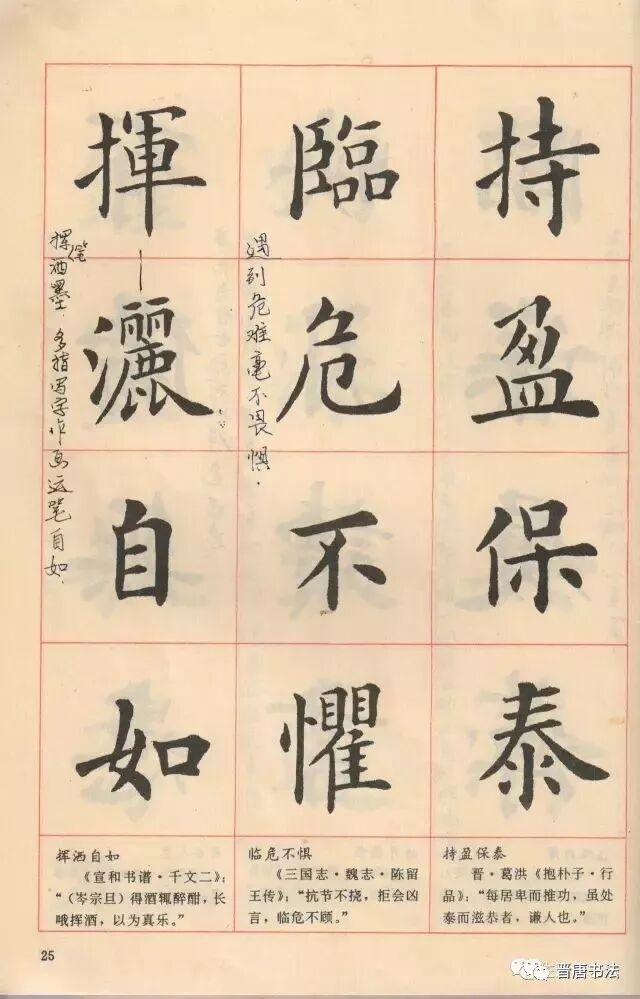 持盈保泰
臨危不懼
遇到危难毫不畏惧.
揮灑自如
挥笔洒墨.多指写字作画运笔自如.
挥洒自如
《宣和书谱·千文二》:
“(岑宗旦)得酒辄醉酣,长
哦挥洒,以为真乐。”
临危不惧
《三国志·魏志·陈留
王传》:“抗节不挠,拒会凶
言,临危不顾。”
持盈保泰
晋·葛洪《抱朴子·行
品》:“每居卑而推功,虽处
泰而滋恭者,谦人也。”
25
晋唐书法